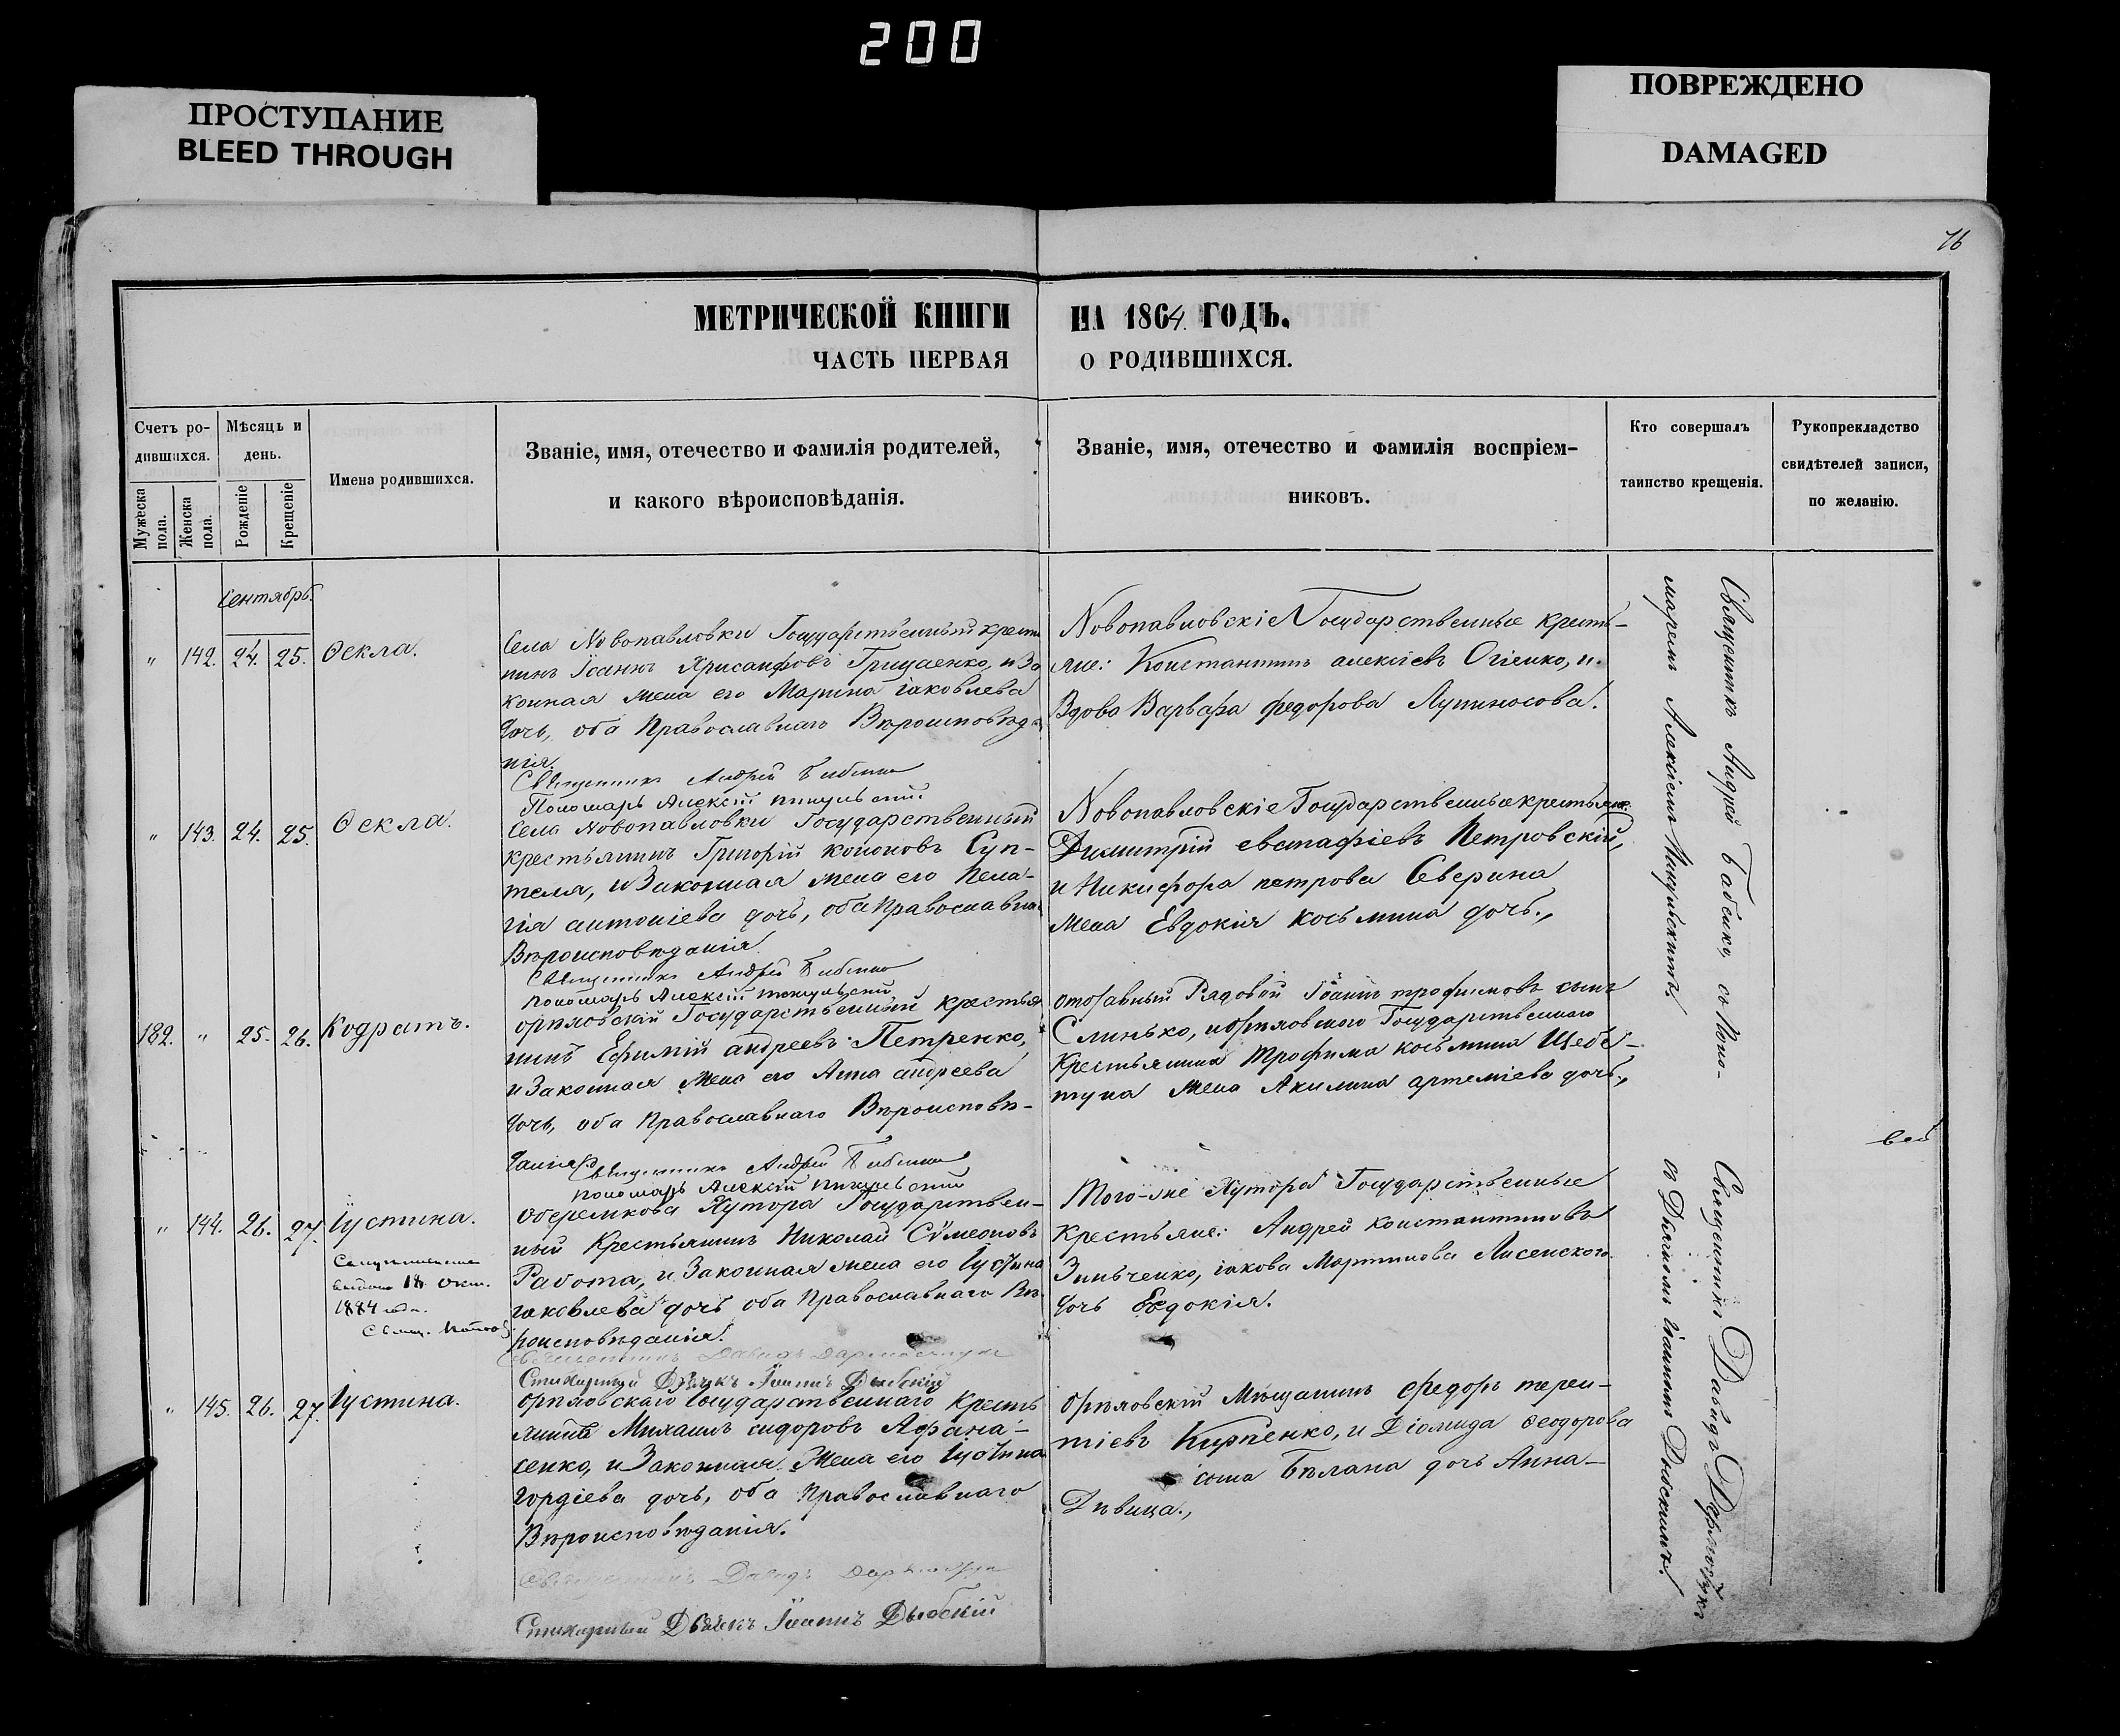 200
ПРОСТУПАНИЕ
BLEED THROUGH
ПОВРЕЖДЕНО
DAMAGED
76
МЕТРИЧЕСКОЙ КНИГИ НА 1864. ГОДЪ.
ЧАСТЬ ПЕРВАЯ О РОДИВШИХСЯ.
Счетъ ро-
дившихся.
Мужеска пола.
Женска пола.
Мѣсяць и
день.
Рожденіе
Крещеніе
Имена родившихся.
Званіе, имя, отечество и фамилія родителей,
и какого вѣроисповѣданія.
Званіе, имя, отечество и фамилія воспріем-
никовъ.
Кто совершалъ
таинство крещенія.
Рукопрекладство
свидѣтелей записи,
по желанію.
Сентябрь.
" 142. 24. 25. Ѳекла.
Села Новопавловки Государственный кресть
нинъ Грищенко, и За
конная жена его Марина іаковлева
дочь, оба Православнаго Вѣроисповѣда
нія.
Священникъ Андрей Бабенко
Пономарь Алексій Пикульскій
Новопавловскіе Государственные кресть-
яне: Константинъ алексіевъ Огіенко, и
Вдова Варвара федорова Лупиносова.
" 143. 24. 25. Ѳекла.
Села Новопавловки Государственный
крестьянинъ Григорій кононовъ Суп-
теля, и Законная жена его Пела-
гія антоніева дочь, оба Православна
Вѣроисповѣданія
Священникъ Андрей Бабенко
пономарь Алексій Пикульскій
Новопавловскіе Государственные крестьяне:
Димитрій евстафіевъ Петровскій,
и Никифора петрова Северина
жена Евдокія косьмина дочь.,
182. " 25. 26. Кодратъ.
орѣховскій Государственный крестья
нинъ Ефимій андреевъ Петренко,
и Законная жена его Анна андреева
дочь, оба Православнаго Вѣроисповѣ-
данія
Священникъ Андрей Бабенко
пономарь Алексій Пикульскій
отставный Рядовой Іоаннъ трофимовъ сынъ
Слинько, и орѣховскаго Государственнаго
Крестьянина Трофима косьмина Щебе-
туна жена Акилина артеміева дочь.,
" 144. 26. 27. Іустина.
выдано 18 Окт.
1884 года.
Свящ.
Оберемкова Хутора Государствен-
ный Крестьянинъ Николай Сѵмеоновъ
Работа, и Законная жена его Іустина
іаковлева дочь оба Православнаго Вѣ-
роисповѣданія.
Священникъ Давидъ
Стихарный Дьячекъ Іоаннъ Дывскій
Того-же Хутора Государственные
Крестьяне: Андрей константиновъ
Зинченко, іакова Мартинова Лисенского
дочь Евдокія.
" 145. 26. 27. Іустина.
орѣховскаго Государственнаго Кресть
янина Михаилъ сидоровъ Афана-
сенко, и Законная жена его Іустина
гордіева дочь, оба Православнаго
Вѣроисповѣданія.
Священникъ Давидъ
Стихарный Дьячекъ Іоаннъ Дывскій
орѣховскій Мѣщанинъ федоръ терен-
тіевъ Кирпенко, и Діомида ѳеодорова
сына Бѣлана дочь Анна-
Дѣвица.,
Священникъ Андрей Бабенко, съ Поно-
маремъ Алексіемъ Пикульскимъ,
Священникъ Давидъ
съ Дьячкомъ Іоанномъ Дывскимъ.